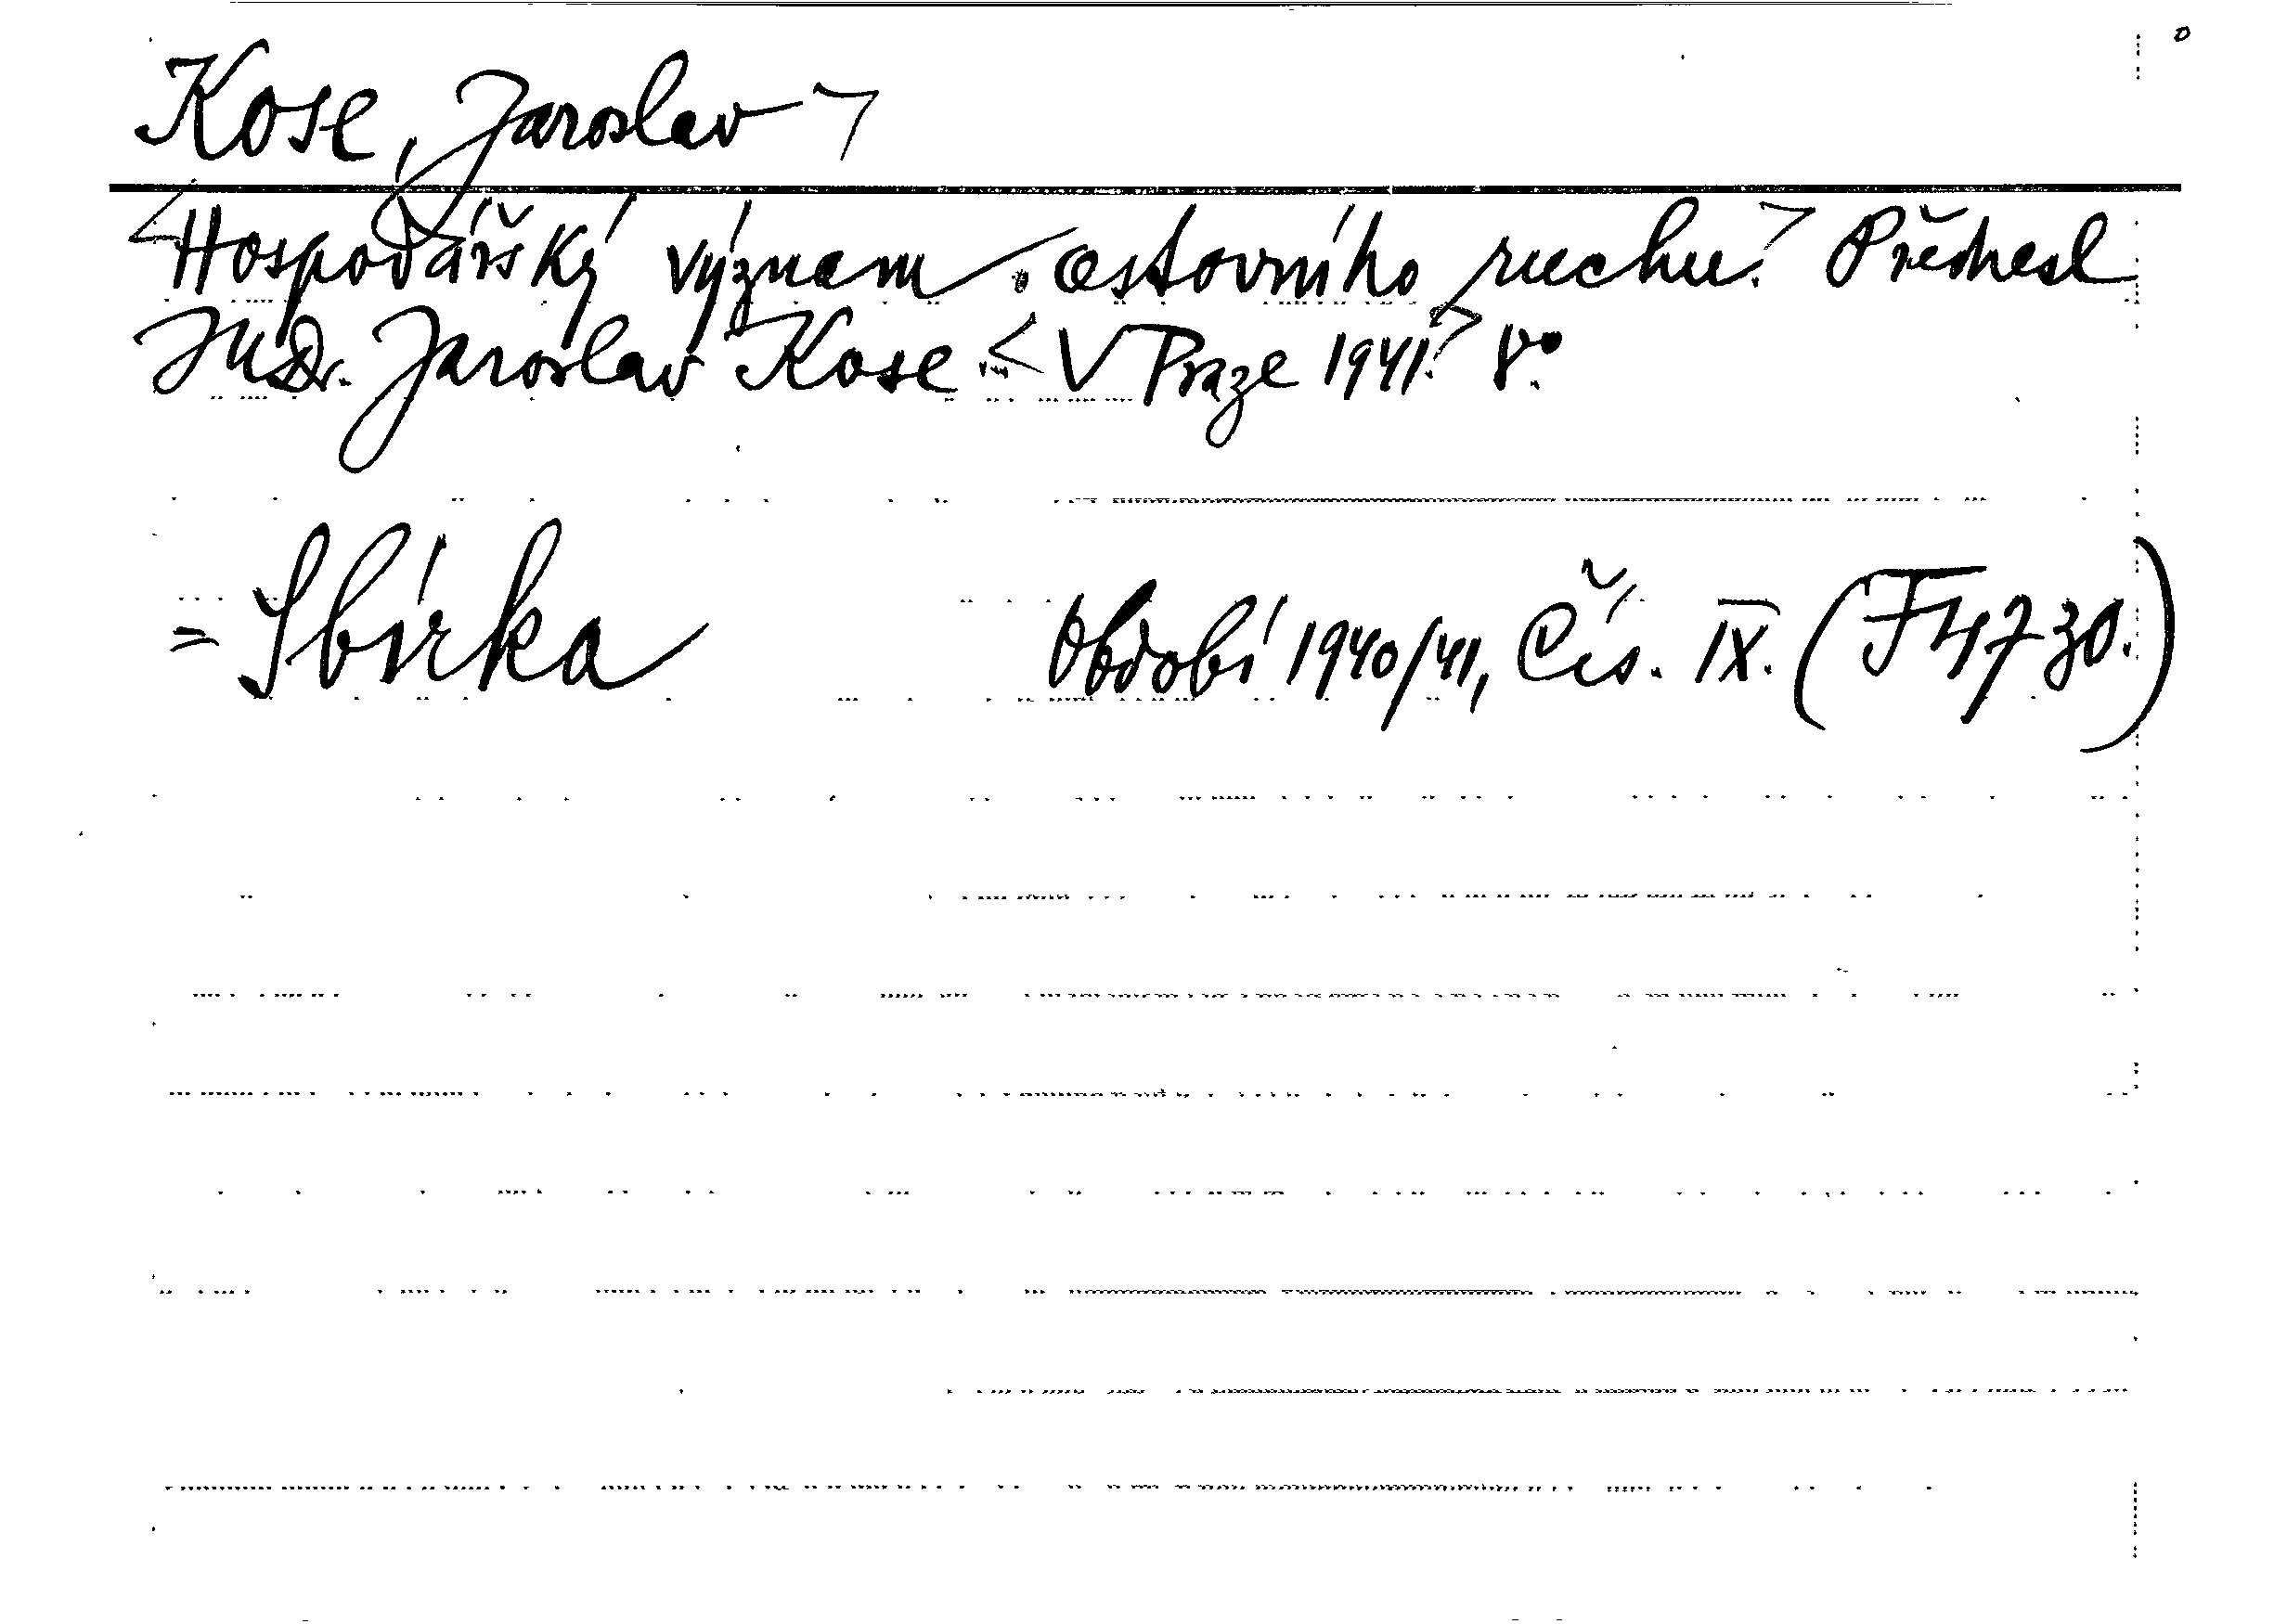 Kose, Jaroslav
Hospodářský význam cestovního ruchu. Přednesl
JUDr. Jaroslav Kose. V Praze 1941. 8°.
= Sbírka Období 1940/41, Čís. IX. (F 4730.)